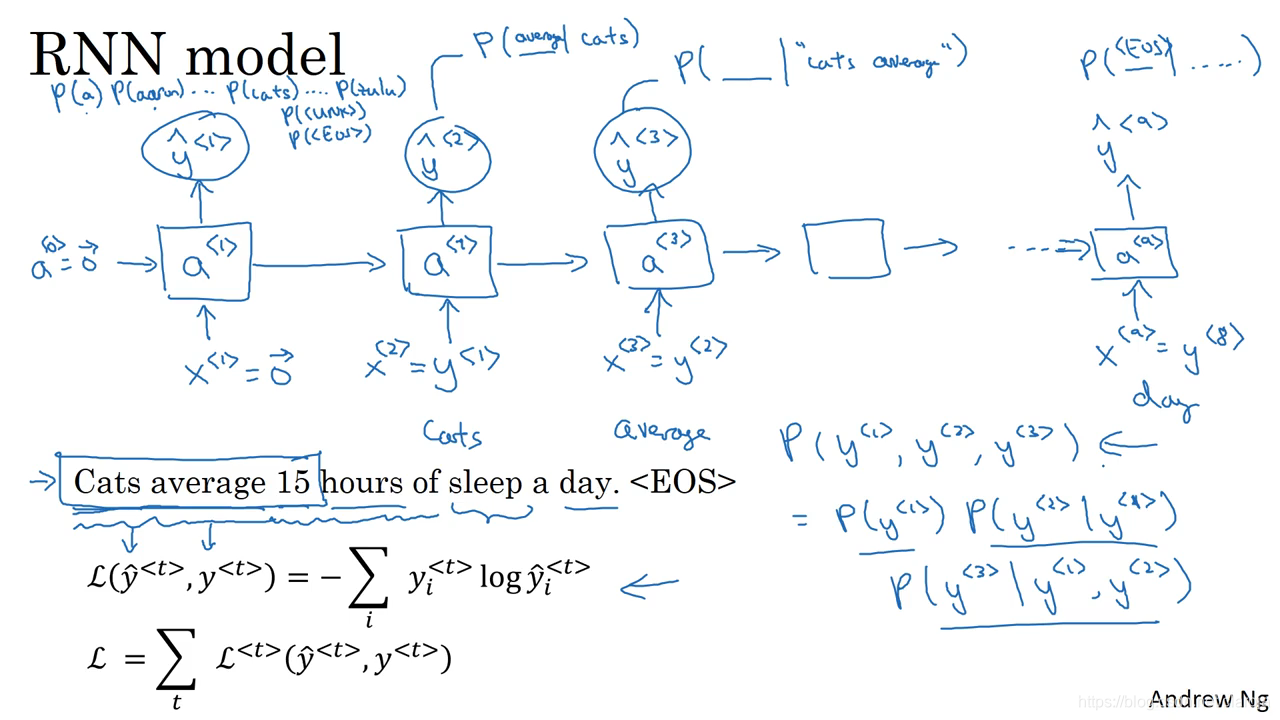 RNN model
P(average | cats)
P( ___ | "cats average")
P(<EOS> | ......)
P(a) P(aaron) ... P(cats) .... P(zulu)
P(<UNK>)
P(<EOS>)
ŷ<1>
ŷ<2>
ŷ<3>
ŷ<9>
a<0> = 0⃗
a<1>
a<2>
a<3>
a<9>
x<1> = 0⃗
x<2> = y<1>
x<3> = y<2>
x<9> = y<8>
Cats
average
day
P(y<1>, y<2>, y<3>)
Cats average 15 hours of sleep a day. <EOS>
= P(y<1>) P(y<2> | y<1>)
P(y<3> | y<1>, y<2>)
ℒ(ŷ<t>, y<t>) = − ∑i yi<t> log ŷi<t>
ℒ = ∑t ℒ<t>(ŷ<t>, y<t>)
Andrew Ng